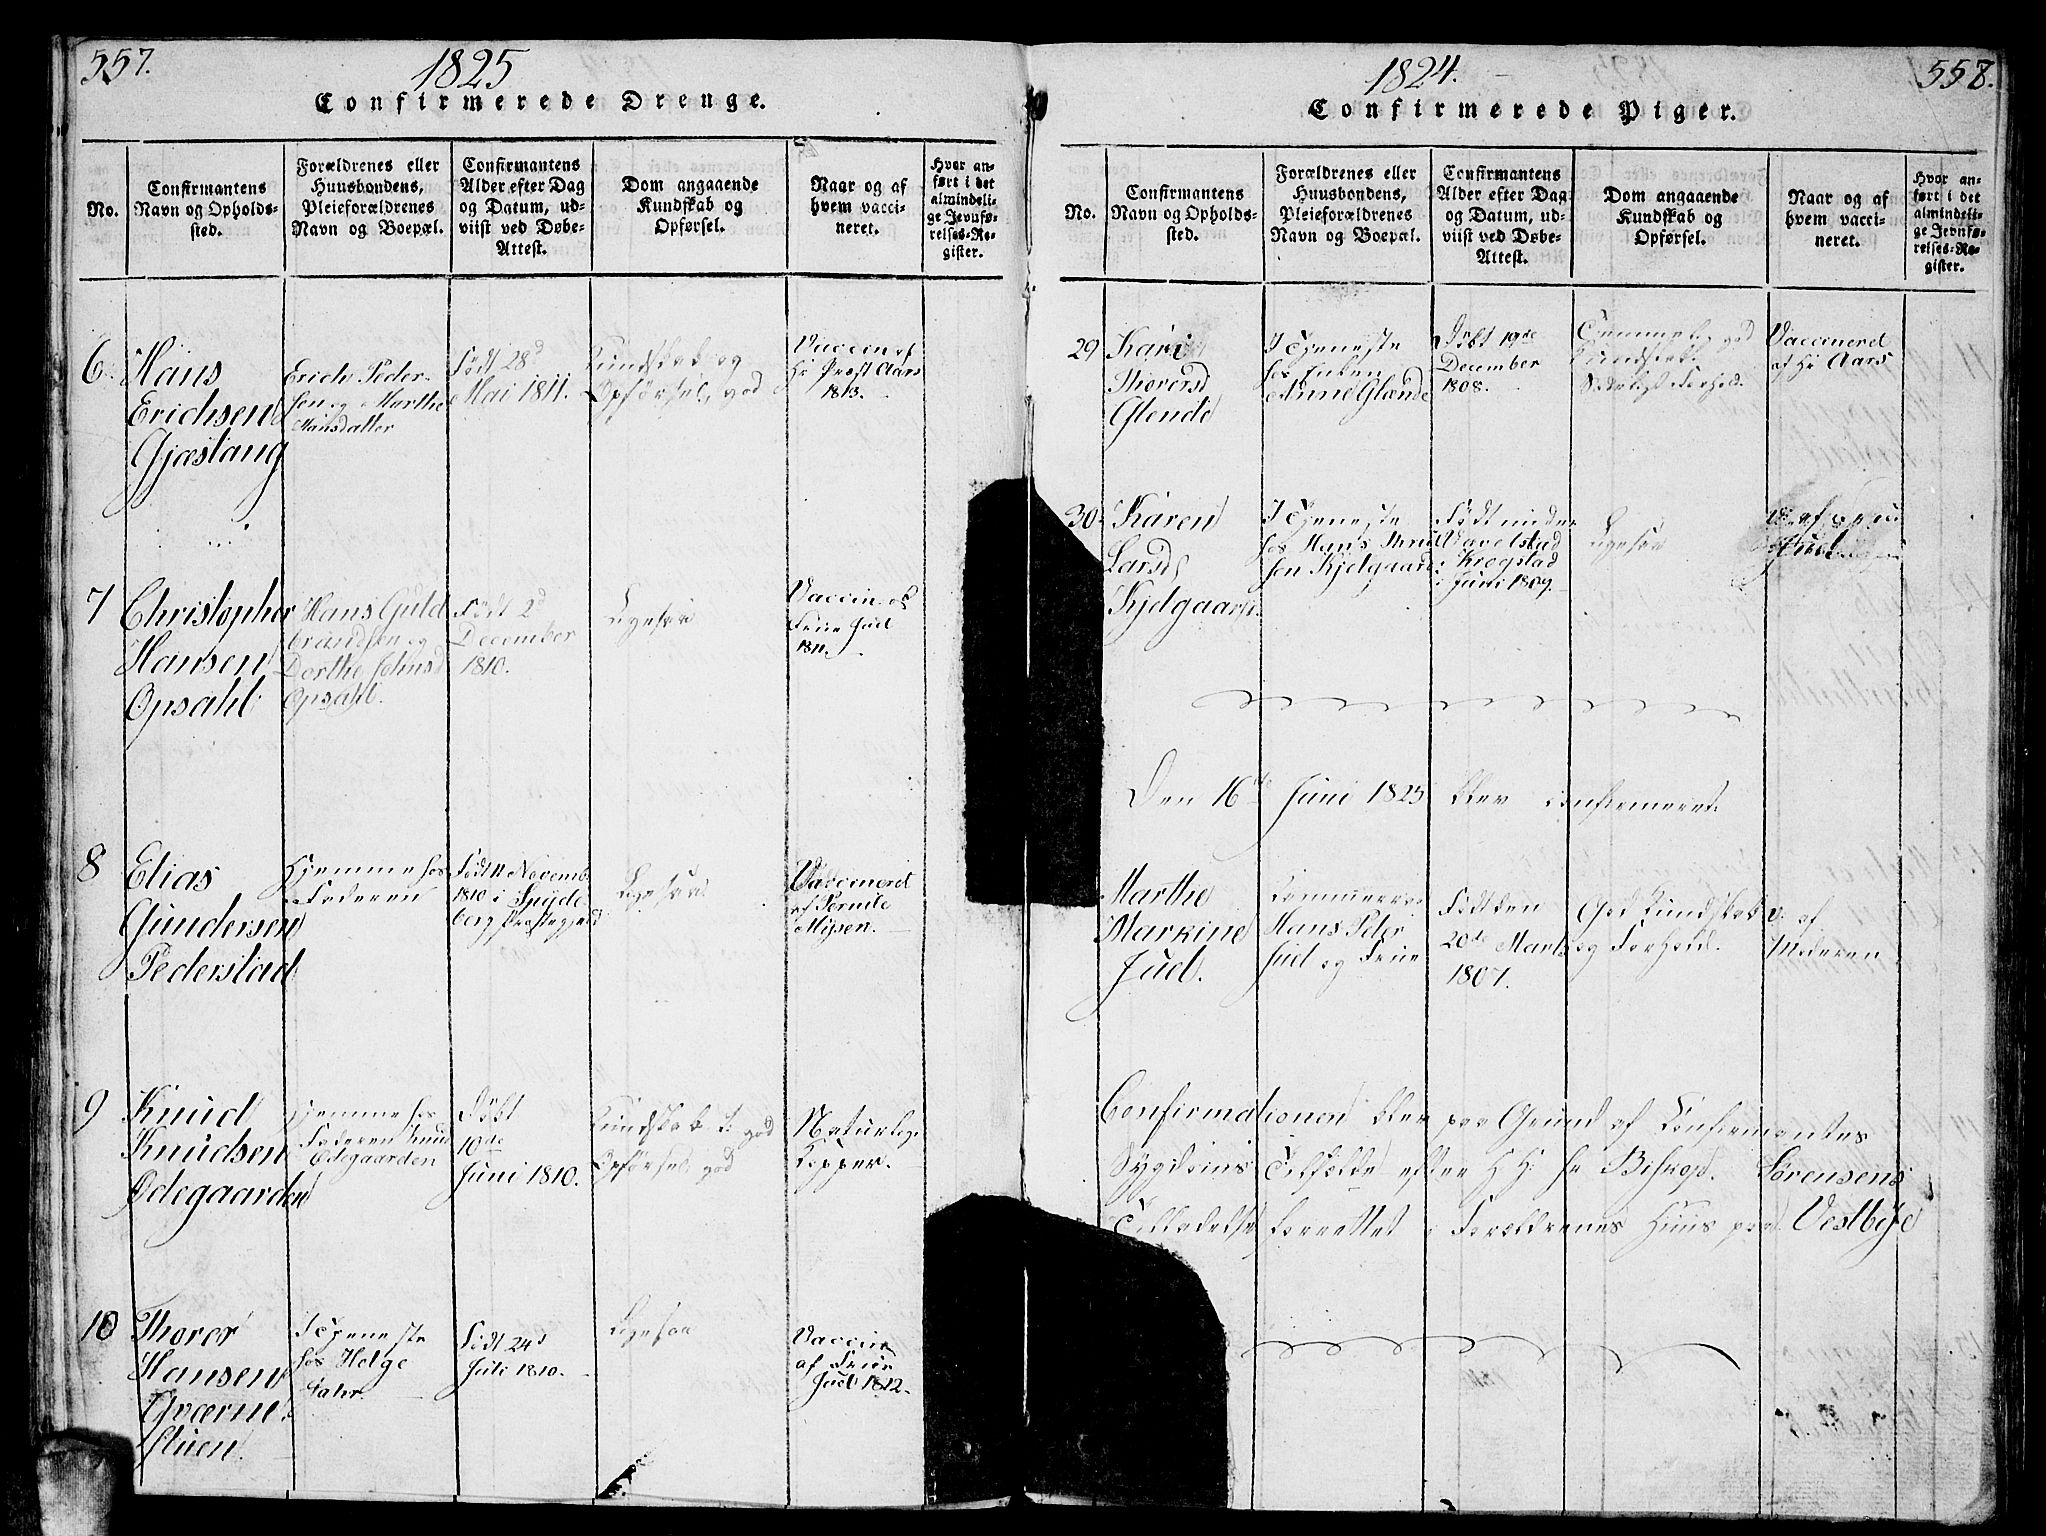 557.
1825
Confirmerede Drenge.
No.
Confirmantens
Navn og Opholds-
sted.
Forældrenes eller
Huusbondens,
Pleieforældrenes
Navn og Boepæl.
Confirmantens
Alder efter Dag
og Datum, ud-
viist ved Døbe-
Attest.
Dom angaaende
Kundskab og
Opførsel.
Naar og af
hvem vacci-
neret.
Hvor an-
ført i det
almindeli-
ge Jevnfø-
relses-Re-
gister.
6.
Hans
Erichsen
Gjæstang
Erich Peder-
sen og Marthe
Hansdatter
Født 28d
Mai 1811.
Kundskab og
Opførsel, god
Vaccin af
Hr Prost Aars
1813.
7
Christopher
Hansen
Opsahl
Hans Guld
brandsen og
Dorthe Johnsd
Opsahl.
Født 2d
December
1810.
Ligesaa
Vaccin. af
Frue Jud
1811.
8
Elias
Gundersen
Pederstad
Hjemme hos
Faderen
Født 11 Novemb.
1810 i Spyde
berg Præstegjeld
Ligesaa
Vaccineret
af Pernile
Mysen.
9
Knud
Knudsen
Ødegaarden
Hjemme hos
Faderen Knud
Ødegaarden
Døbt
10de
Juni 1810.
Kundskab t. god
Opførsel god
Naturlige
Kopper.
10
Thorer
Hansen
Qværne
stuen.
I Tjeneste
hos Helge
Født 24d
Juli 1810.
Ligesaa
Vaccin
af Frue
Jud 1812.
558.
1824.
Confirmerede Piger.
No.
Confirmantens
Navn og Opholds-
sted.
Forældrenes eller
Huusbondens,
Pleieforældrenes
Navn og Boepæl.
Confirmantens
Alder efter Dag
og Datum, ud-
viist ved Døbe-
Attest.
Dom angaaende
Kundskab og
Opførsel.
Naar og af
hvem vacci-
neret.
Hvor an-
ført i det
almindeli-
ge Jevnfø-
relses-Re-
gister.
29
Kari
Thorersd
Glende
I Tjeneste
hos Enken
Anne Glænde
Døbt 19de
December
1808.
Temmelig god
Kundskab.
Sædeligt Forhold.
Vaccinered
af Hr Aars
30
Karen
Larsd
Kjelgaard
I Tjeneste
hos Hans
sen Kjelgaard
Født
Krogstad
i Juni 1809.
Ligesaa
V. af
Jud
Den 16de Juni 1825 blev confirmeret:
Marthe
Markine
Jud.
Hans Peter
Jud og Frue
Født den
20de Marts
1807.
God Kundskab
og Forhold.
V. af
Moderen
Confirmationen blev paa Grund af Confirmantes
Sygdoms Tilfælde efter H H. Hr Biskop Sørensens
Tilladelse forrettet i Forældrenes Huus paa Vestbye